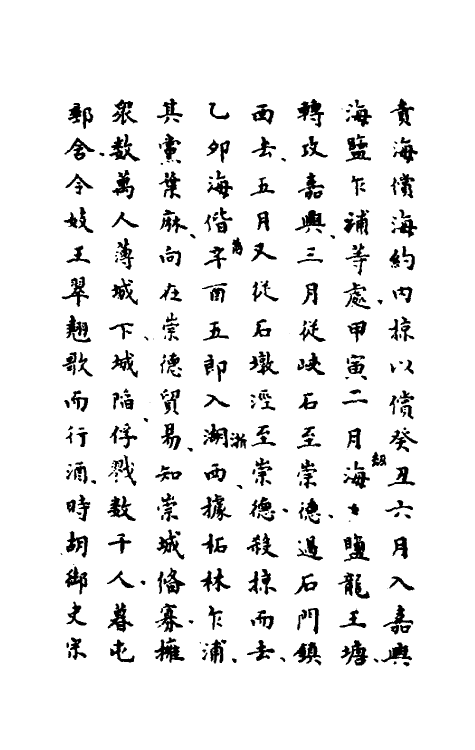 責海償海約內掠以償癸丑六月入嘉興
海鹽乍補等處甲寅二月海鹽龍王塘、
轉攻嘉興、三月從峽石至崇德、過石門鎮
西去、五月又從石墩涇至崇德、殺掠而去、
乙卯海偕辛酉五郎入湖西、據柘林乍浦、
其黨葉麻、向在崇德貿易、知崇城俻寡、擁
衆数萬人薄城下、城陷、俘戮数千人、暮屯
郵舍、令妓王翠翹歌而行酒、時胡御史宗